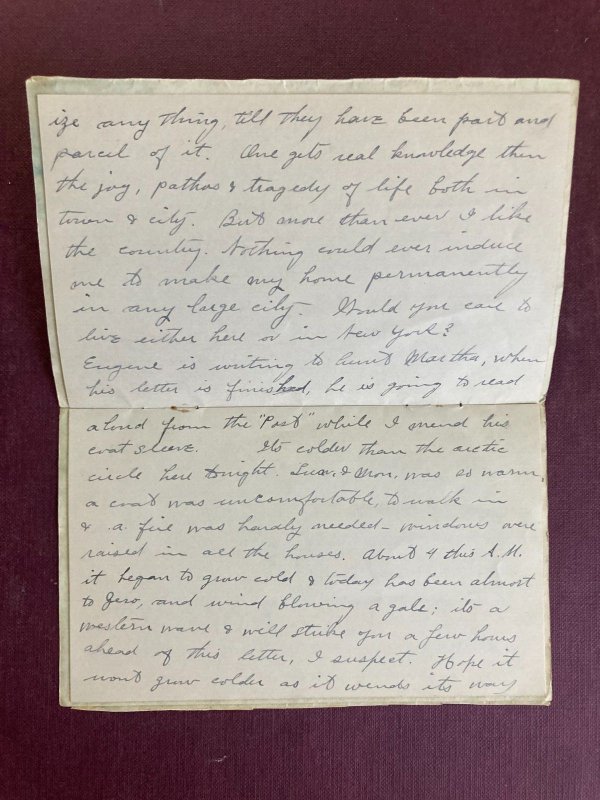 ize any thing, till they have been part and
parcel of it. One gets real knowledge then
the joy, pathos & tragedy of life both in
town & city. But more than ever I like
the country. Nothing could ever induce
me to make my home permanently
in any large city. Would you care to
live either here or in New York?
Eugene is writing to Aunt Martha, when
his letter is finished, he is going to read
aloud from the "Post" while I mend his
coat sleeve. Its colder than the arctic
circle here tonight. Sun. & Mon. was so warm,
a coat was uncomfortable, to walk in
& a fire was hardly needed - windows were
raised in all the houses. About 4 this A.M.
it began to grow cold & today has been almost
to Zero, and wind blowing a gale; its a
western wave & will strike you a few hours
ahead of this letter, I suspect. Hope it
wont grow colder as it wends its way